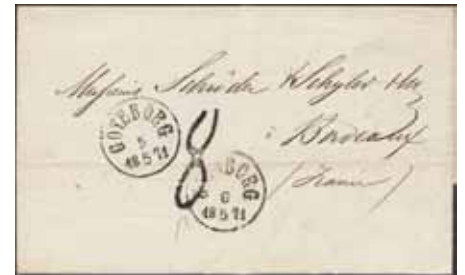 Messieurs Schröder & Schyler & Co
à Bordeaux
(France)
GÖTEBORG
5
18 5 71
8
BORG
6
18 5 71